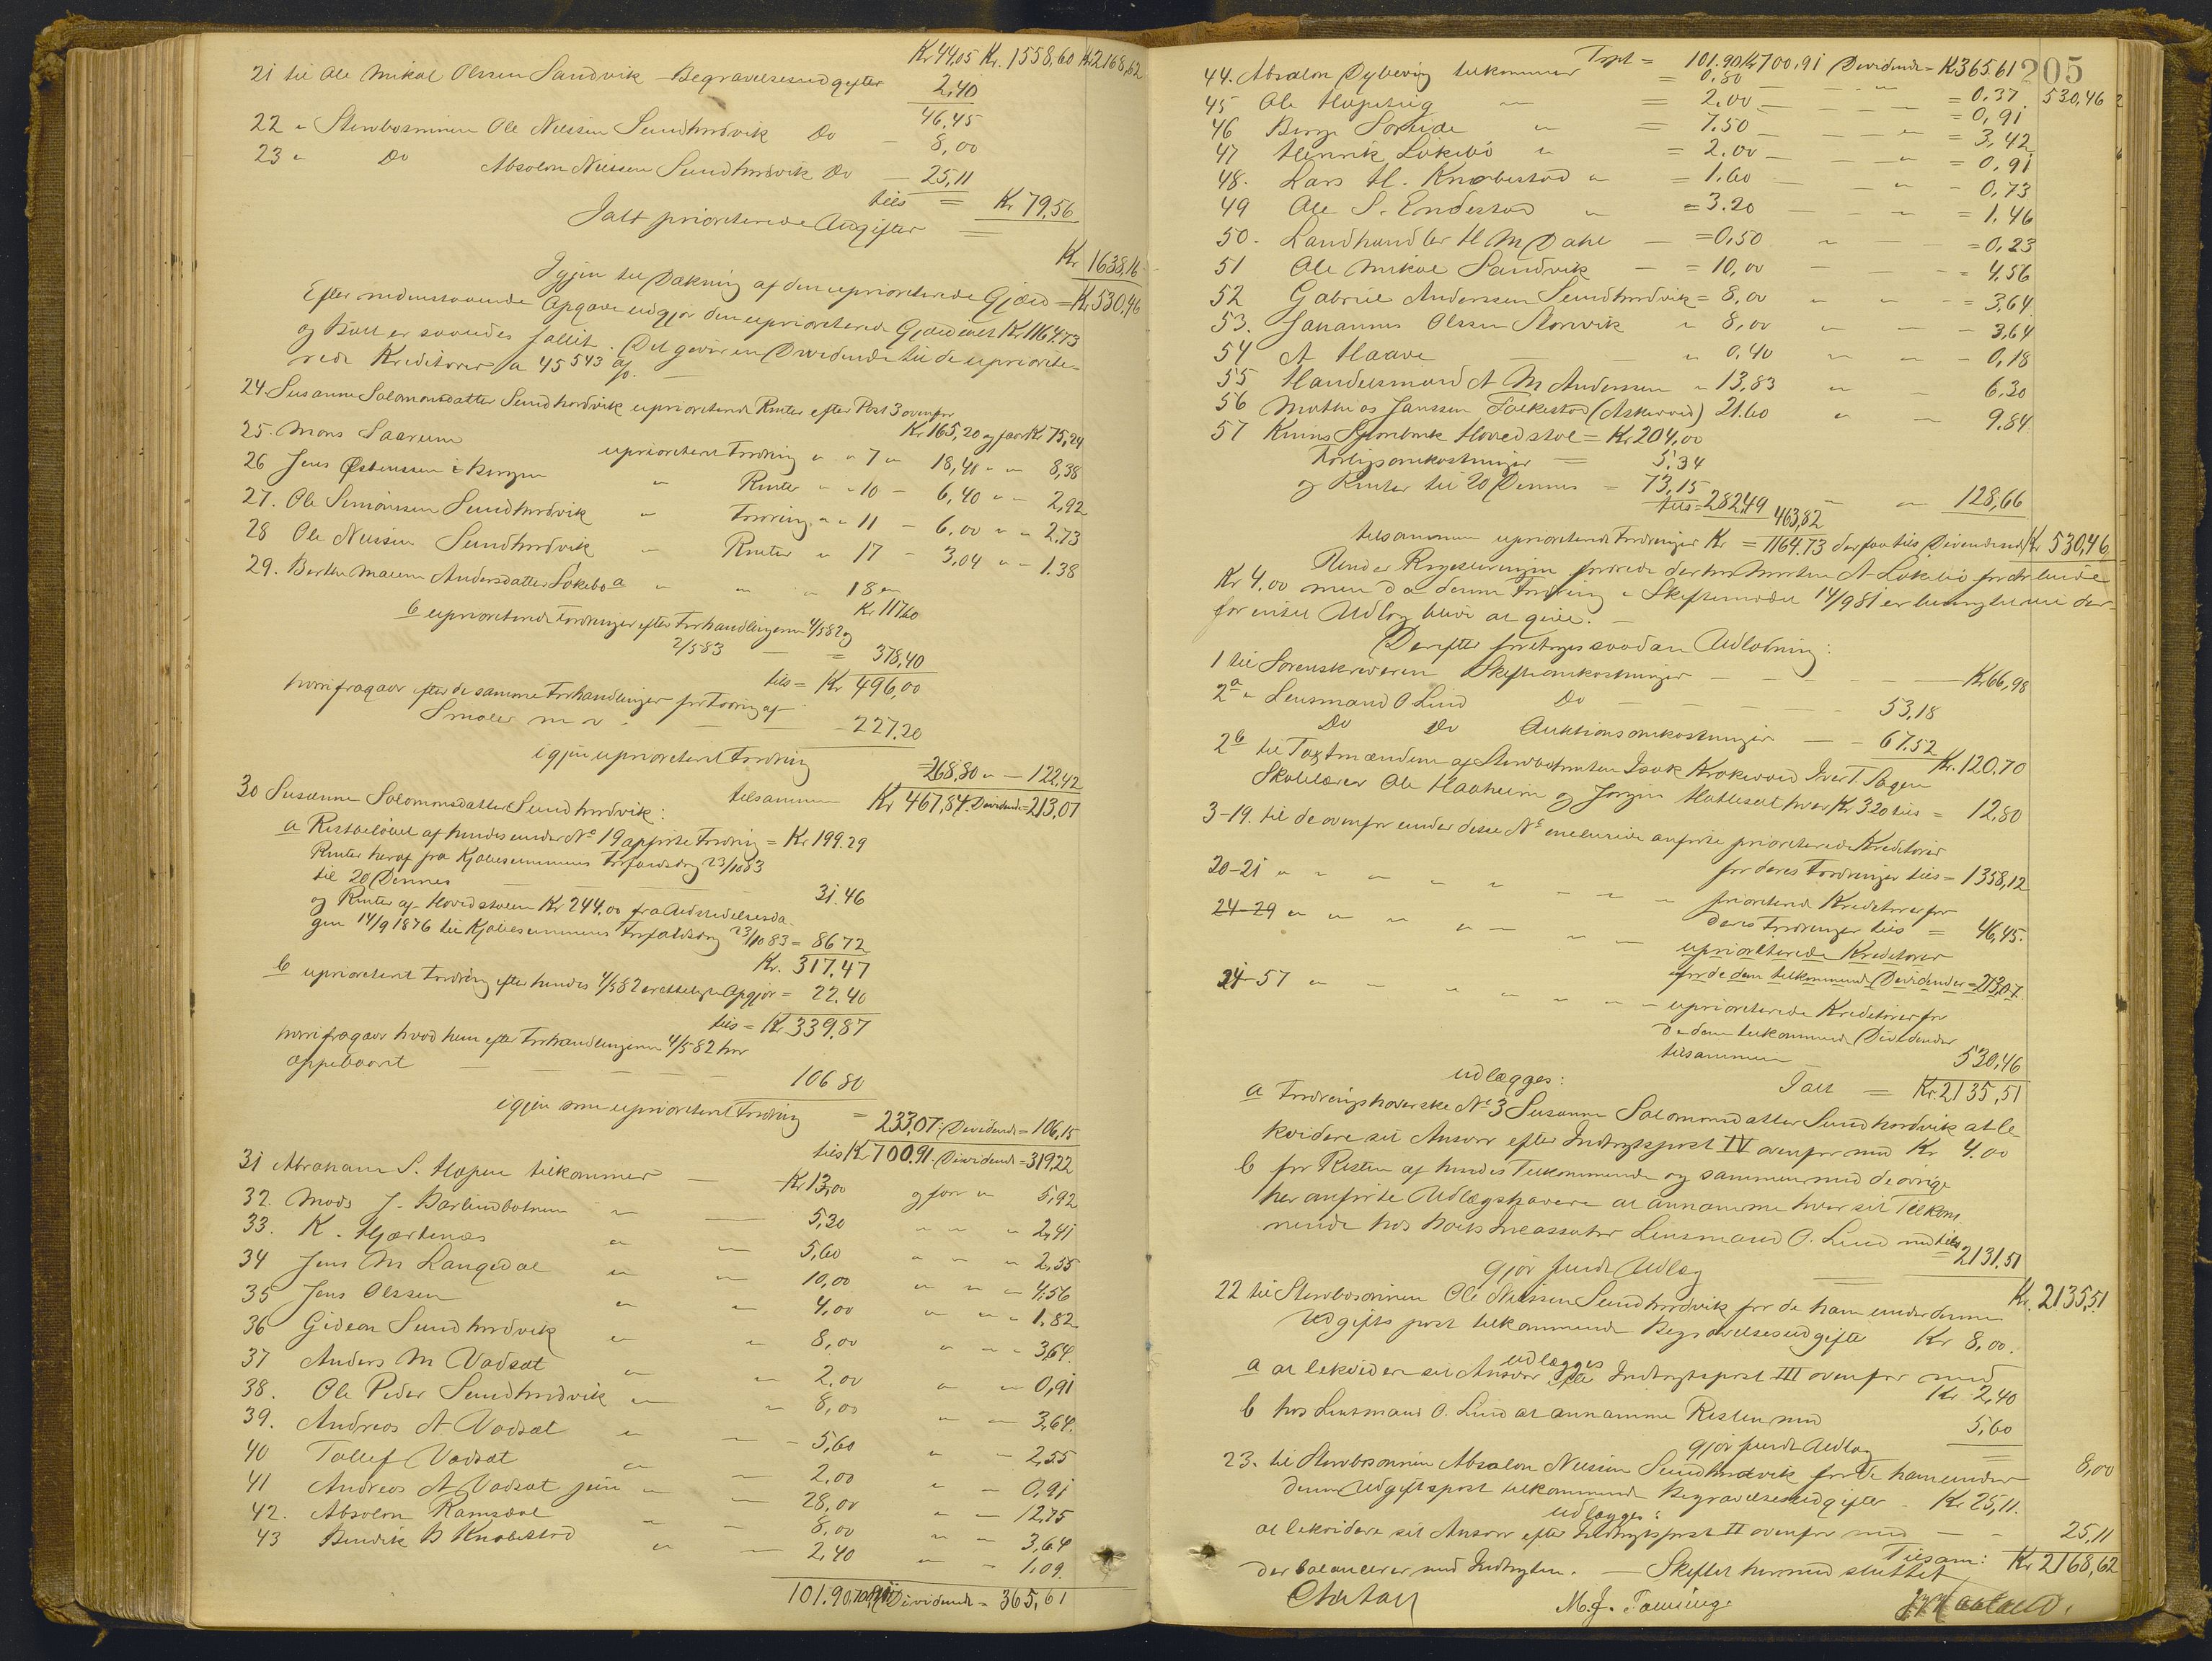 Kr 44,05 Kr. 1558,60 Kr 2168,62
21 til Ole Mikal Olssen Sandvik Begravelsesudgifter 2,40
46,45
22 " Stervbosønnen Ole Nilssen Sundhordvik Do - 8,00
23 " Do Absolon Nilssen Sundhordvik Do - 25,11
tils = Kr 79,56
Jalt prioriterede Udgifter = Kr 1638,16
Igjen til Dækning af den uprioriterede Gjæld = Kr 530,46
Efter nedenstaaende Opgave udgjør den uprioriterede Gjæld ialt Kr 1164.73
og Boet er saaledes fallit. Det gives en Dividende til de upriorite-
rede Kreditorer a 45 543 %.
24 Susanne Salomonsdatter Sundhordvik uprioriterede Renter efter Post 3 ovenfor
Kr 165,20 og faar Kr 75,24
25. Mons Saarum uprioriteret Fordring " " 7 " 18,40 " " 8,38
26 Jens Østenssen i Bergen " Renter " " 10 - 6,40 " - 2,92
27. Ole Simonssen Sundhordvik " Fordring " " 11 - 6,00 " " 2.73
28 Ole Nilssen Sundhordvik " Renter " 17 - 3,04 " - 1.38
29. Berthe Malene Andersdatter Løkebø a " " " 18 " Kr 117,60
b uprioriterede Fordringer efter Forhandlingerne 4/5 82 og
2/5 83 - = 378,40
tils = Kr 496,00
hvori fragaar efter de samme Forhandlinger for Foring af
Smaler m v. - 227.20
igjen uprioriteret Fordring = 268,80 " - 122,42
tilsammen Kr 467,84. Dividende = 213,07
30 Susanne Salomonsdatter Sundhordvik:
a Restbeløbet af hendes under No 19 opførte Fordring = Kr 199.29
Renter heraf fra Kjøbesummens Forfaldsdag 23/10 83
til 20 Dennes - 31.46
og Renter af Hovedstolen Kr 244,00 fra Udstedelsesda-
gen 14/9 1876 til Kjøbesummens Forfaldsdag 23/10 83 = 86 72
Kr. 317.47
b uprioriteret Fordring efter hendes 4/5 82 Opgjør = 22.40
tils = Kr 339,87
hvori fragaar hvad hun efter Forhandlingerne 4/5 82 har
oppebaaret - 106 80
igjen som uprioriteret Fordring = 233,07: Dividende = 106,15
tils Kr 700.91 Dividende = 319,22
31 Abraham S. Hopen tilkommer - Kr 13,00 og faar " 5,92
32. Mads J. Barlindbotnen " - 5,30 " " " 2,41
33. K. Hjartenæs " - 5,60 " " " 2,55
34 Jens M Langedal " - 10,00 " " " 4,56
35 Jens Olssen " - 4,00 " " " 1.82
36 Gideon Sundhordvik " " 8,00 " " - 3,64.
37 Anders M Vadsæt " " 2,00 " " 0,91
38. Ole Peder Sundhordvik " " 8,00 " - 3,64.
39. Andreas A Vadsæt " - 5,60 " - 2,55
40 Tollef Vadsæt " - 2,00 " - 0,91
41 Andreas A Vadsæt jun " - 28,00 " - 12,75
42. Absolon Ramsdal " - 8,00 " - 3,64
43 Bendik B Knabestad " - 2,40 " - 1,09.
101.90 Dividende = 365,61
205
Tspt = 101.90 Kr 700,91 Dividende = Kr 365.61
44. Absalon Dybevig tilkommer = 0,80 - " = 0,37. 530,46
45 Ole Høpevig " = 2,00 - = 0,91
46 Børge Sørteide " = 7.50 - " = 3,42
47 Henrik Løkebø " = 2.00 - " = 0,91
48. Lars H. Knabestad " = 1,60 - " - 0,73
49 Ole S. Endestad " = 3.20 - " = 1,46
50. Landhandler H M Dahl - = 0,50 " - = 0,23
51 Ole Mikal Sandvik - = 10,00 - - = 4,56
52 Gabriel Anderssen Sundhordvik = 8,00 " " = 3,64.
53. Johannes Olssen Storevik " 8,00 " - - 3,64
54 A Haave - " 0,40 " " - 0,18
55 Handelsmand A M Anderssen " 13,83 " - 6,30
56 Mathias Janssen Folkestad (Askevold) 21.60 " - 9.84
57 Kinns Hovedstol = Kr 204,00
Forligsomkostninger = 5,34
og Renter til 20 Dennes = 73,15
tils = 282,49 463,82 " 128,66
tilsammen uprioriterede Fordringer Kr = 1164.73 der faar tils Dividende Kr 530,46
Under Registreringen fordrede derhos Morten A Løkebø for Arbeide
Kr 4,00 men da denne Fordring i Skiftemødet 14/9 81 er benegtet vil der-
for intet Udlæg blive at give. -
Derefter foretoges saadan Udlodning:
1 til Sorenskriveren Skifteomkostninger - Kr 66,98
2a " Lensmand O Lund Do - 53,18
Do Do Auktionsomkostninger - 67.52
Kr. 120,70
2b til Taxtmændene af Stervboet Isak Krakevaag Iver T. Sagen
Skolelærer Ole Haaheim og Jørgen Hatleset hver Kr 3.20 tils = 12,80
3-19. til de ovenfor under disse No inclusive anførte prioriterede Kreditorer
for deres Fordringer tils = 1358,12
20-21 " " " " " prioriterede Kreditorer for
deres Fordringer tils = 46,45.
24-29 " " " " uprioriterede Kreditorer
for de dem tilkommende Dividender = 213,07.
24-57 " " " " " uprioriterede Kreditorer for
de dem tilkommende Dividender
tilsammen 530,46
Ialt = Kr. 2135,51
udlægges:
a Fordringshaverske No 3 Susanne Salomonsdatter Sundhordvik at le-
kvidere sit Ansvar efter Indtægtspost IV ovenfor med Kr 4.00
b for Resten af hendes Tilkommende og sammen med de øvrige
her anførte Udlægshavere at annamme hver sit Tilkom-
mende hos Boets Incassator Lensmand O. Lund med tils = 2131.51
gjør fuldt Udlæg = Kr. 2135,51
22 til Stervbosønnen Ole Nilssen Sundhordvik for de ham under denne
Udgiftspost tilkommende Begravelsesudgifter Kr 8,00.
udlægges
a at lekvidere sit Ansvar efter Indtægtspost III ovenfor med
Kr. 2,40
b hos Lensmand O. Lund at annamme Resten med 5,60
gjør fuldt Udlæg = 8,00
23. til Stervbosønnen Absalon Nilssen Sundhordvik for de ham under
denne Udgiftspost tilkommende Begravelsesudgifter - Kr 25,11.
udlægges:
at lekvidere sit Ansvar efter Indtægtspost II ovenfor med - - 25,11
Tilsam: Kr 2168,62
der balancerer med Indtægten. - Skiftet hermed sluttet
M. J.